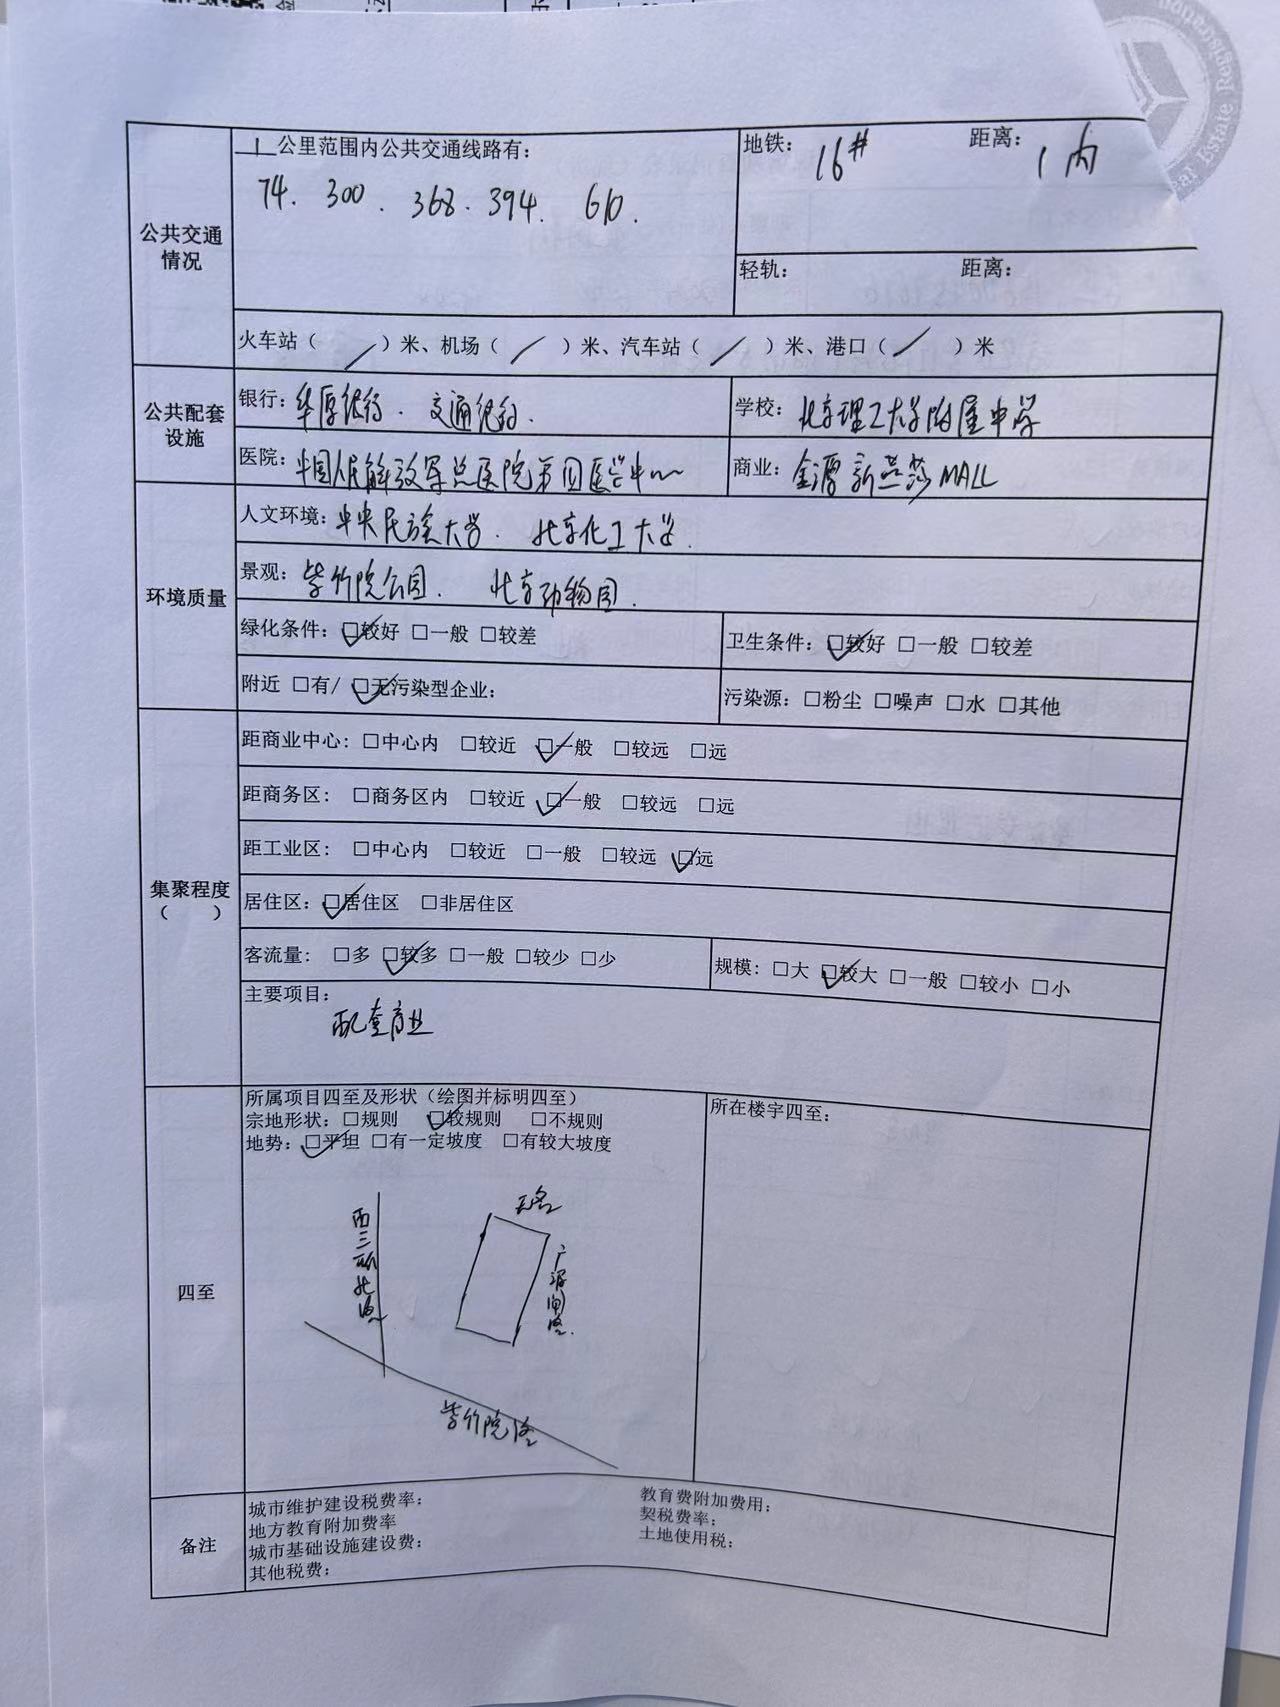 Real Estate Registration
公共交通
情况
1 公里范围内公共交通线路有:
74. 300. 368. 394. 610.
地铁: 16# 距离: 1内
轻轨: 距离:
火车站( / )米、机场( / )米、汽车站( / )米、港口( / )米
公共配套
设施
银行: 华夏银行. 交通银行.
学校: 北京理工大学附属中学
医院: 中国人民解放军总医院第四医学中心
商业: 金源新燕莎MALL
环境质量
人文环境: 中央民族大学. 北京化工大学.
景观: 紫竹院公园. 北京动物园.
绿化条件: ☑较好 □一般 □较差
卫生条件: ☑较好 □一般 □较差
附近 □有/ ☑无污染型企业:
污染源: □粉尘 □噪声 □水 □其他
集聚程度
( )
距商业中心: □中心内 □较近 ☑一般 □较远 □远
距商务区: □商务区内 □较近 ☑一般 □较远 □远
距工业区: □中心内 □较近 □一般 □较远 ☑远
居住区: ☑居住区 □非居住区
客流量: □多 ☑较多 □一般 □较少 □少
规模: □大 ☑较大 □一般 □较小 □小
主要项目:
配套商业
四至
所属项目四至及形状(绘图并标明四至)
宗地形状: □规则 ☑较规则 □不规则
地势: ☑平坦 □有一定坡度 □有较大坡度
所在楼宇四至:
西三环北路
无名
广源闸路
紫竹院路
备注
城市维护建设税费率:
地方教育附加费率
城市基础设施建设费:
其他税费:
教育费附加费用:
契税费率:
土地使用税: